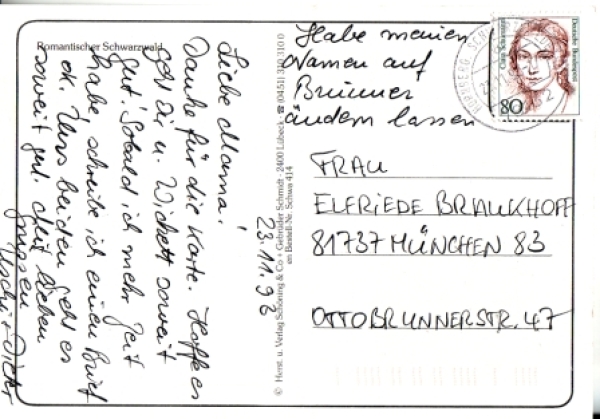 Romantischer Schwarzwald
Liebe Mama!
Danke für die Karte. Hoffe es
geht dir u. Wickerl soweit
gut. Sobald ich mehr Zeit
habe schreibe ich einen Brief
ok. Uns beiden geht es
soweit gut. Mit lieben
Grüssen
Uschi + Dieter
23.11.96
© Herst. u. Verlag Schöning & Co + Gebrüder Schmidt - 2400 Lübeck - ☎ (0451) 310 310 0
Bestell-Nr. Schwa 414
Habe meinen
Namen auf
Brunner
ändern lassen
80
Deutsche Bundespost
FRAU
ELFRIEDE BRAUKHOFF
81737 MÜNCHEN 83
OTTOBRUNNERSTR. 47